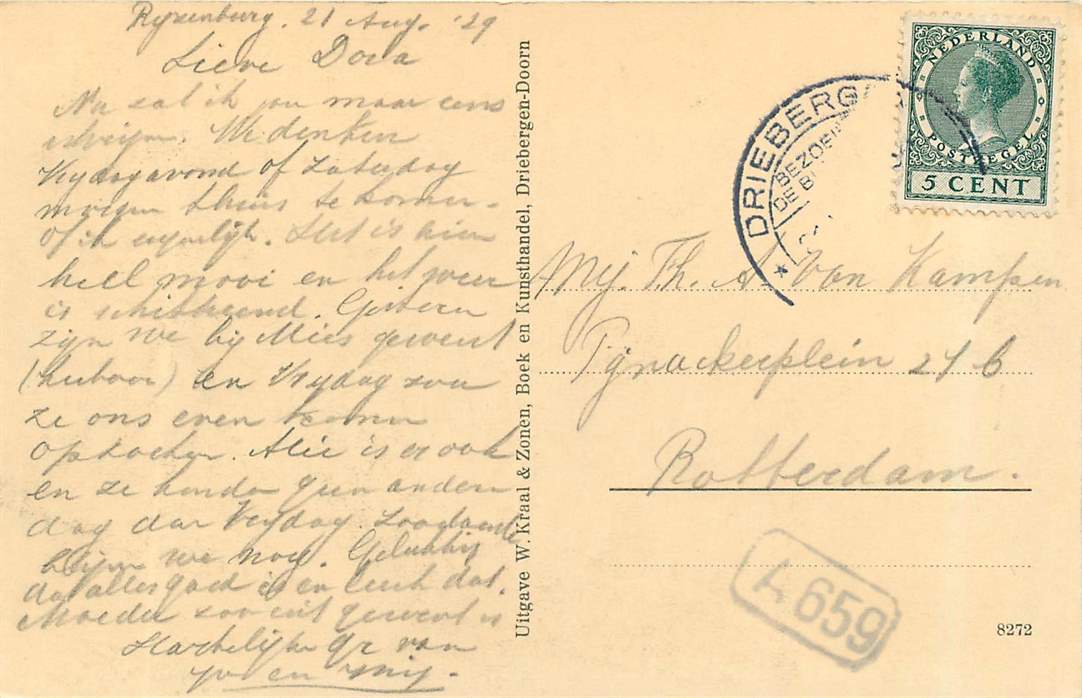 Ryzenburg. 21 Aug. '29
Lieve Dora
Nu zal ik jou maar eens
schrijven. We denken
Vrydagavond of Zaterdag
morgen thuis te komen.
of ik eigenlijk. Het is hier
heel mooi en het weer
is schitterend. Gisteren
zijn we bij Mies geweest
en Vrydag zou
ze ons even komen
opzoeken. Alie is er ook
en ze konden geen andere
dag dan Vrydag. Zoodoende
blijven we nog. Gelukkig
dat alles goed is en leuk dat
Moeder zoo uit geweest is
Hartelijke gr van
Jo en Mij.
Uitgave W. Kraal & Zonen, Boek en Kunsthandel, Driebergen-Doorn
NEDERLAND
POSTZEGEL
5 CENT
DRIEBERG
BEZOE
DE B
Mej. Th. A. Van Kampen
Pijnackerplein 21 b
Rotterdam.
A 659
8272